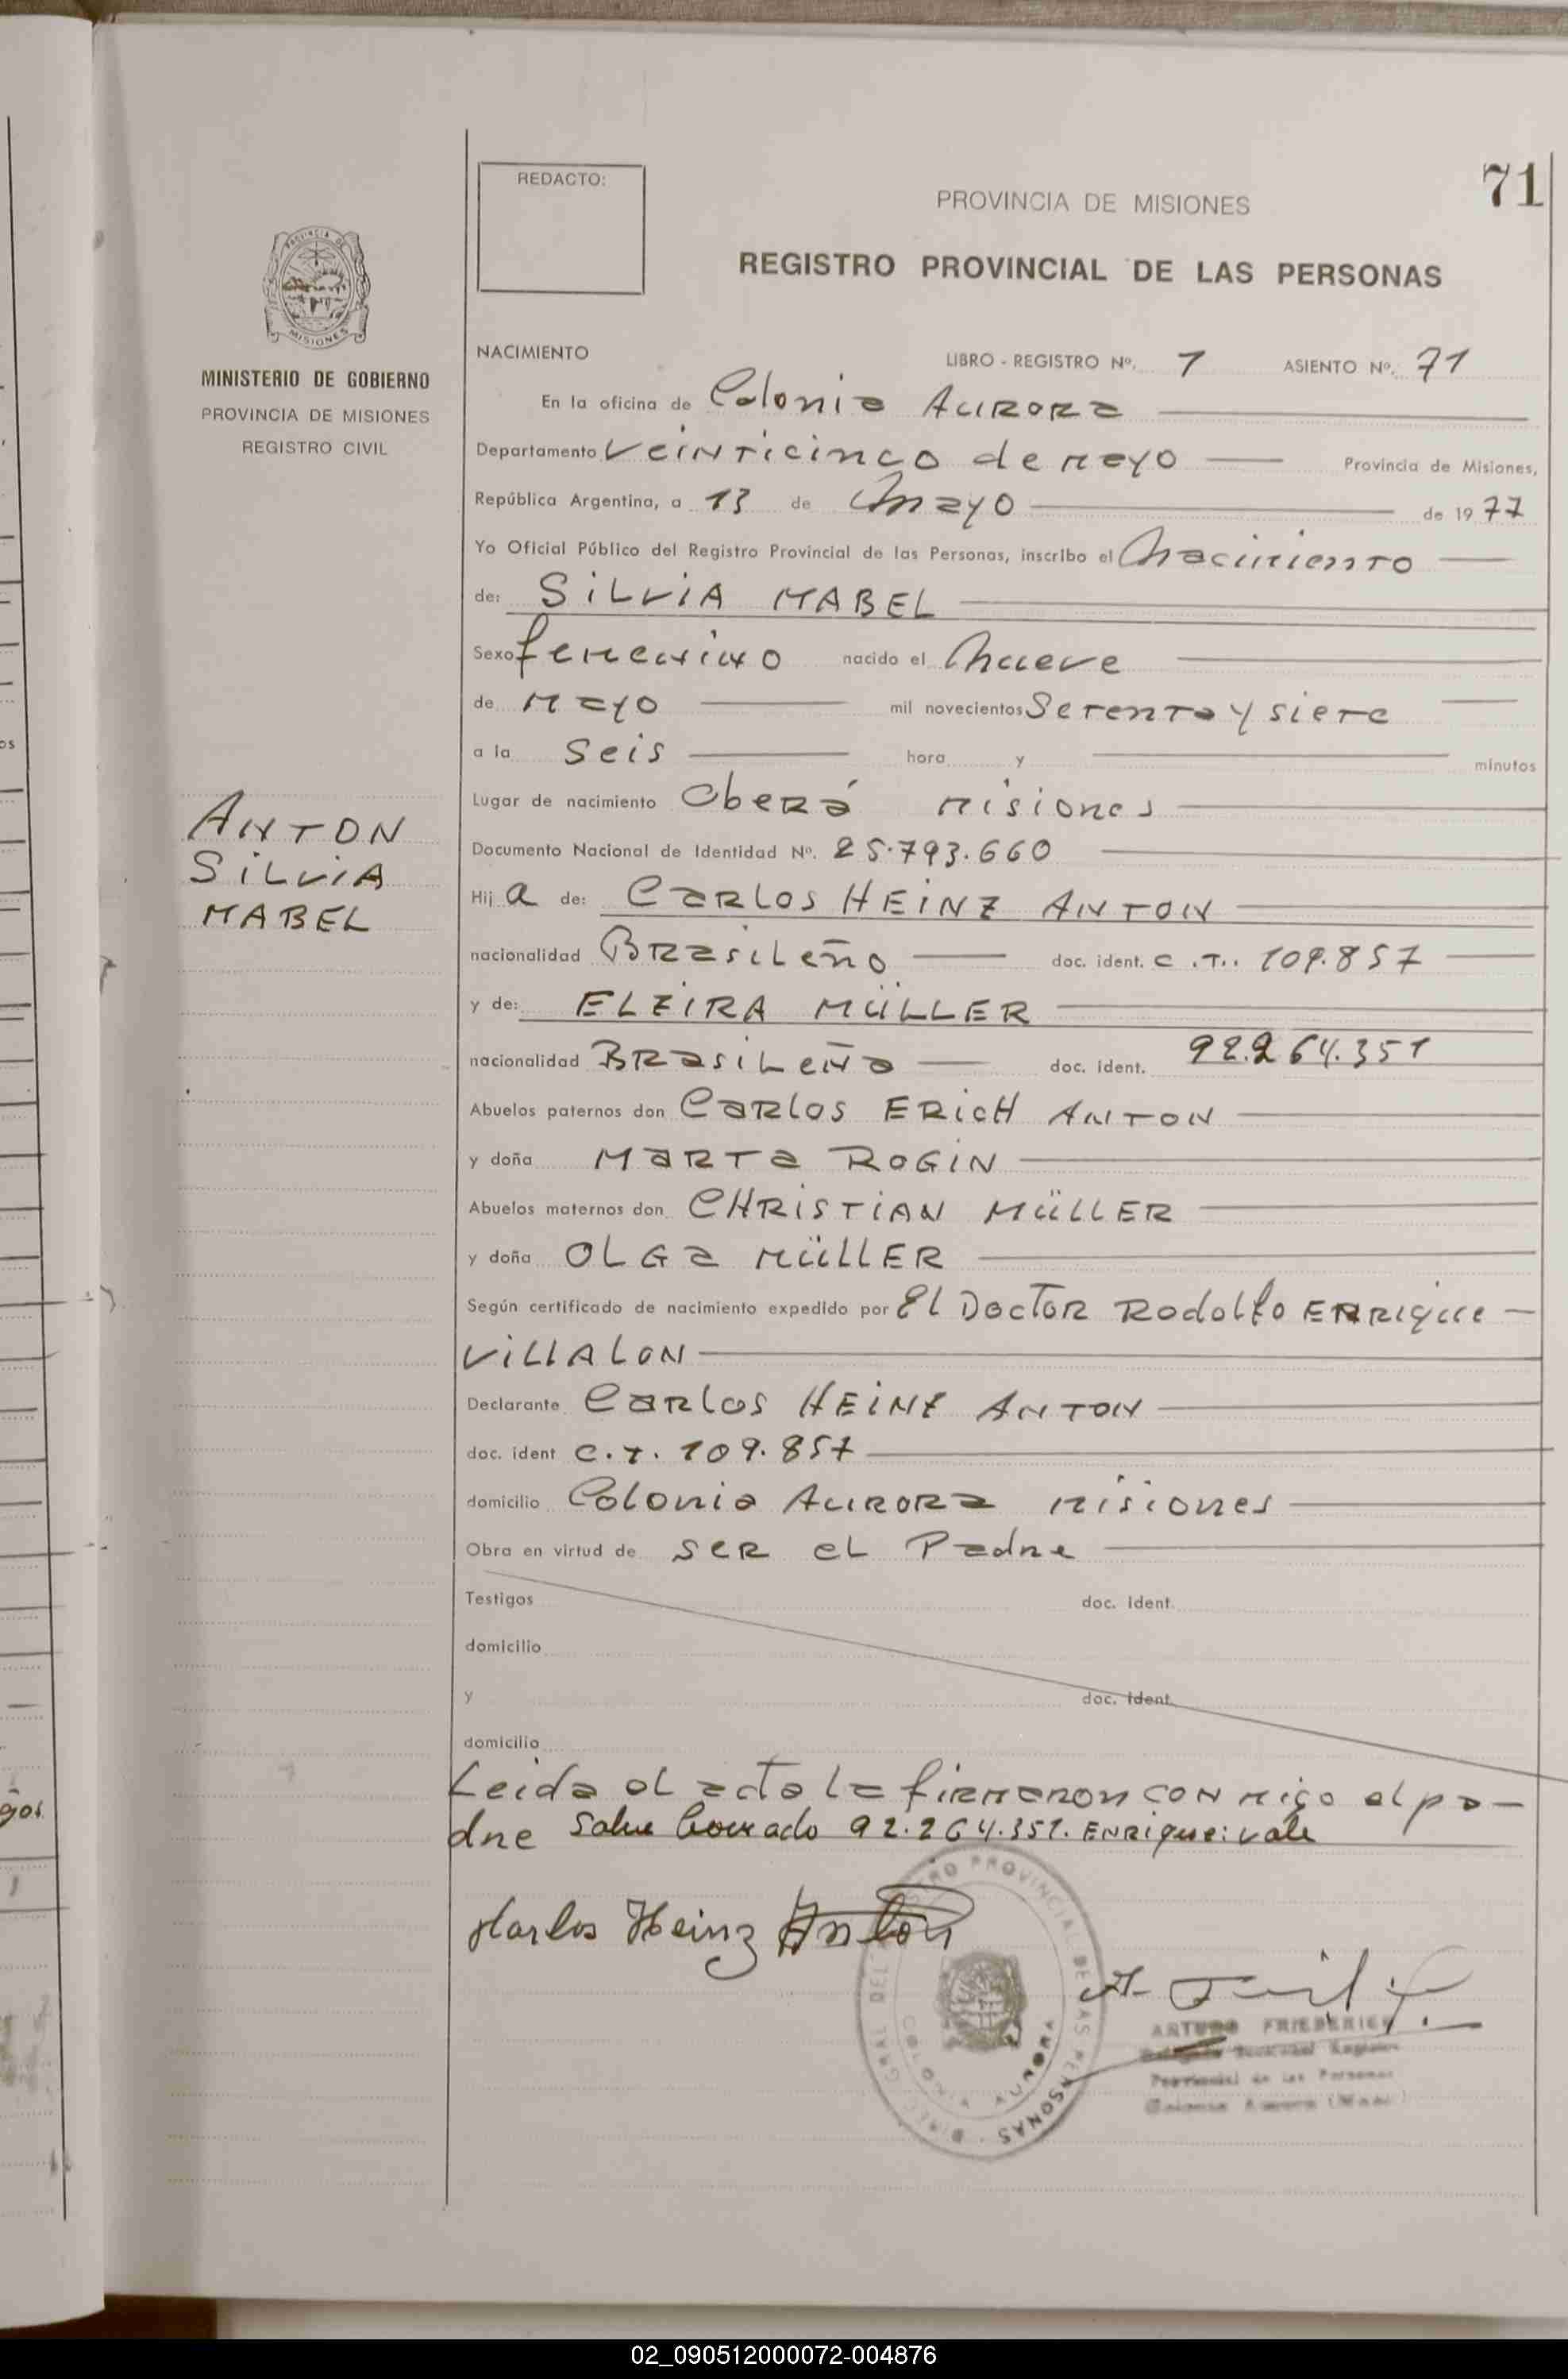 71
REDACTO:
PROVINCIA DE MISIONES
REGISTRO PROVINCIAL DE LAS PERSONAS
PROVINCIA DE
MISIONES
MINISTERIO DE GOBIERNO
PROVINCIA DE MISIONES
REGISTRO CIVIL
NACIMIENTO LIBRO - REGISTRO Nº. 1 ASIENTO Nº. 71
En la oficina de Colonia AURORA
Departamento Veinticinco de mayo Provincia de Misiones,
República Argentina, a 13 de mayo de 1977
Yo Oficial Público del Registro Provincial de las Personas, inscribo el nacimiento
de: SILVIA MABEL
Sexo femenino nacido el nueve
de mayo mil novecientos Setenta y siete
a la seis hora y minutos
Lugar de nacimiento Oberá misiones
Documento Nacional de Identidad Nº. 25.793.660
Hija de: CARLOS HEINZ ANTON
nacionalidad BRASILEÑO doc. ident. C.T.. 109.857
y de: ELZIRA MÜLLER
nacionalidad BRASILEÑA doc. ident. 92.264.351
Abuelos paternos don CARLOS ERICH ANTON
y doña MARTA ROGIN
Abuelos maternos don CHRISTIAN MÜLLER
y doña OLGA MÜLLER
Según certificado de nacimiento expedido por El DOCTOR RODOLFO ENRIQUE
VILLALON
Declarante CARLOS HEINZ ANTON
doc. ident C.T. 109.857
domicilio Colonia AURORA misiones
Obra en virtud de SER EL Padre
Testigos doc. ident.
domicilio
y doc. ident.
domicilio
Leida el acta la firmaron con migo el pa-
dre Salve borrado 92.264.351. ENRique: vale
ANTON
SILVIA
MABEL
Karlos Heinz Anton
DIREC. GRAL. DEL REGISTRO PROVINCIAL DE LAS PERSONAS
COLONIA AURORA
ARTURO FRIEDERICH
Provincial de las Personas
Colonia Aurora
02_090512000072-004876